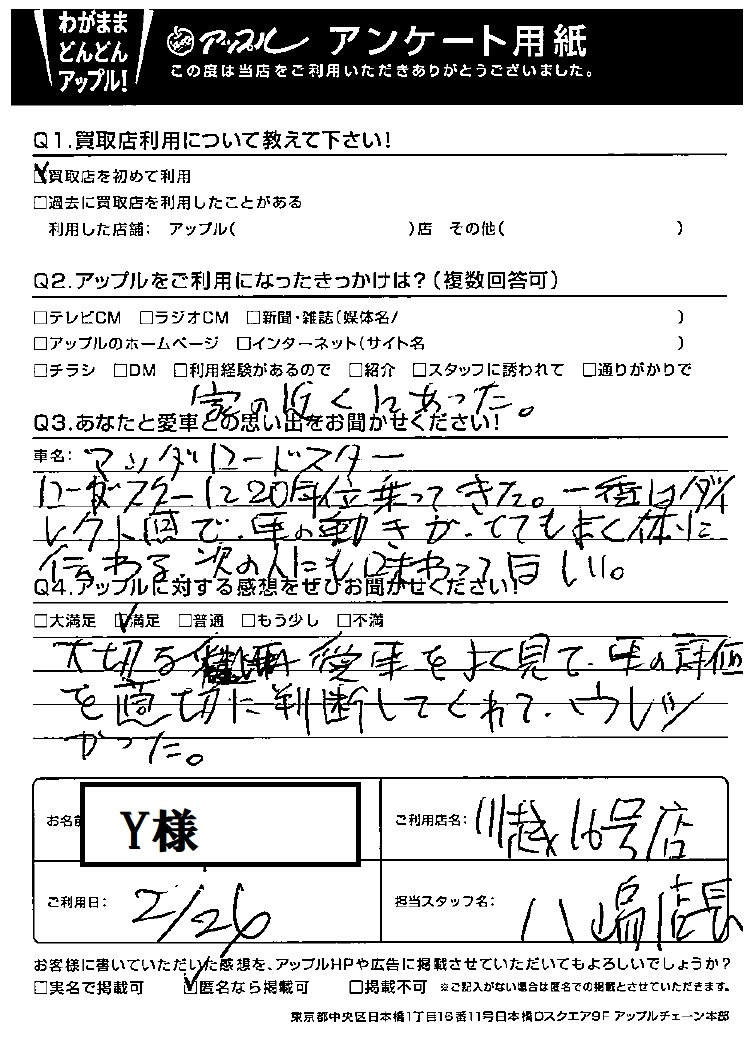 わがまま
どんどん
アップル!
アップル アンケート用紙
この度は当店をご利用いただきありがとうございました。
Q1.買取店利用について教えて下さい!
☑買取店を初めて利用
□過去に買取店を利用したことがある
利用した店舗: アップル( )店 その他( )
Q2.アップルをご利用になったきっかけは?(複数回答可)
□テレビCM □ラジオCM □新聞・雑誌(媒体名/ )
□アップルのホームページ □インターネット(サイト名 )
□チラシ □DM □利用経験があるので □紹介 □スタッフに誘われて □通りがかりで
家の近くにあった。
Q3.あなたと愛車との思い出をお聞かせください!
車名: マツダロードスター
ロードスターに20年位乗ってきた。一番はダイ
レクト感で、車の動きが、とてもよく体に
伝わる。次の人にも味わってほしい。
Q4.アップルに対する感想をぜひお聞かせください!
□大満足 ☑満足 □普通 □もう少し □不満
大切な 愛車をよく見て、車の評価
を適切に判断してくれて、ウレシ
かった。
お名前 Y様
ご利用店名: 川越16号店
ご利用日: 2/26
担当スタッフ名: 八嶋店長
お客様に書いていただいた感想を、アップルHPや広告に掲載させていただいてもよろしいでしょうか?
□実名で掲載可 ☑匿名なら掲載可 □掲載不可 ※ご記入がない場合は匿名での掲載とさせていただきます。
東京都中央区日本橋1丁目16番11号日本橋Dスクエア9F アップルチェーン本部